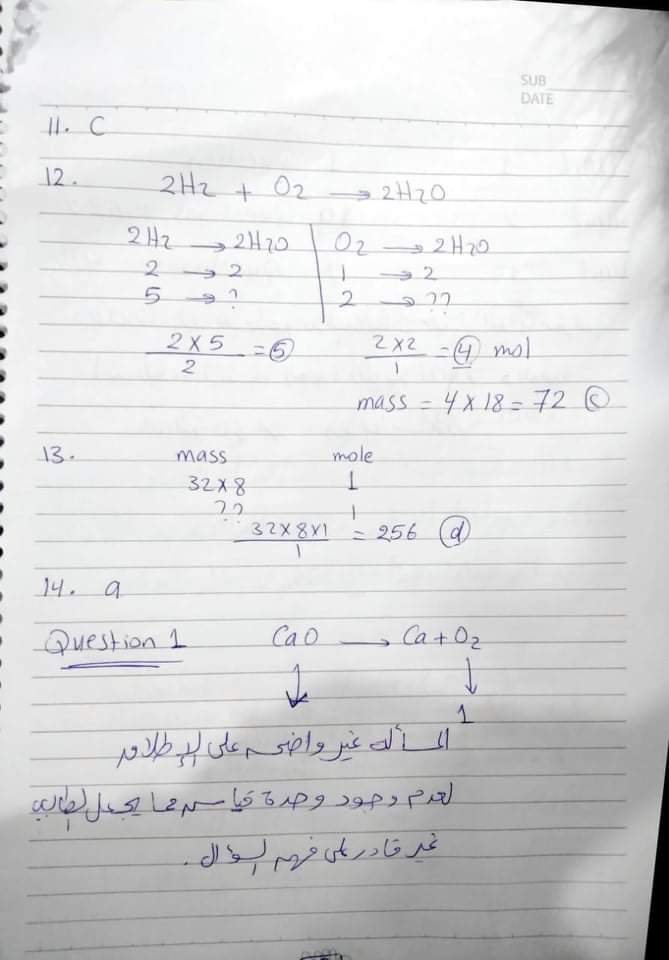 SUB
DATE
11. C
12. 2H2 + O2 → 2H2O
2H2 → 2H2O | O2 → 2H2O
2 → 2 | 1 → 2
5 → ? | 2 → ??
2 x 5 / 2 = 5   2 x 2 / 1 = 4 mol
mass = 4 x 18 = 72 C
13. mass mole
32 x 8 1
?? 1
32 x 8 x 1 / 1 = 256 d
14. a
Question 1 CaO → Ca + O2
↓ ↓
1
المسألة غير واضحه على الإطلاق
لعدم وجود وحدة قياس مما يجعل الطالب
غير قادر على فهم السؤال .